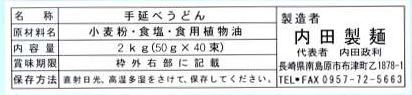 名称 手延べうどん
原材料名 小麦粉・食塩・食用植物油
内容量 2kg(50g×40束)
賞味期限 枠外右部に記載
保存方法 直射日光、高温多湿をさけて、保存してください。
製造者
内田製麺
代表者 内田政利
長崎県南島原市布津町乙1878-1
TEL・FAX0957-72-5663